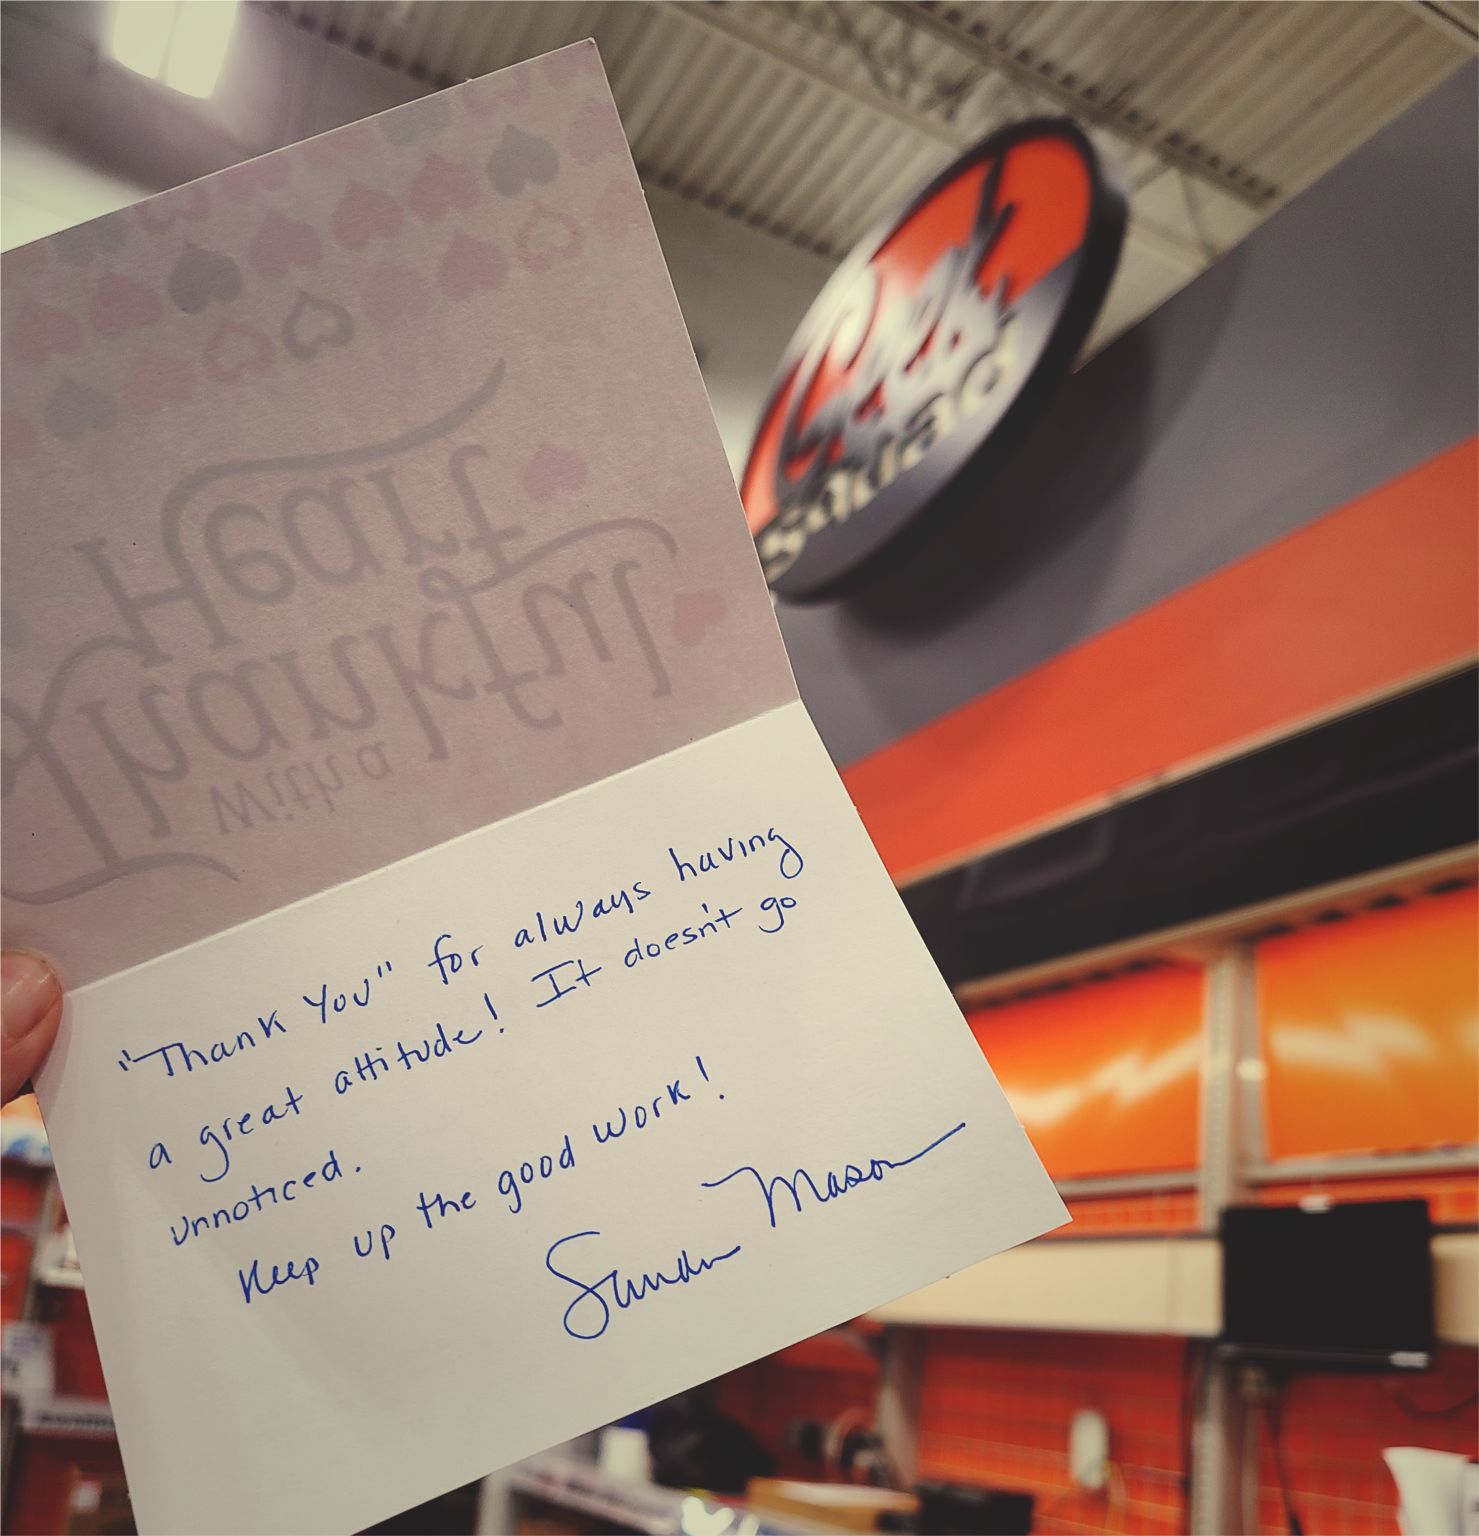 with a
Thankful
Heart
Geek
Squad
"Thank You" for always having
a great attitude! It doesn't go
unnoticed.
Keep up the good work!
Mason